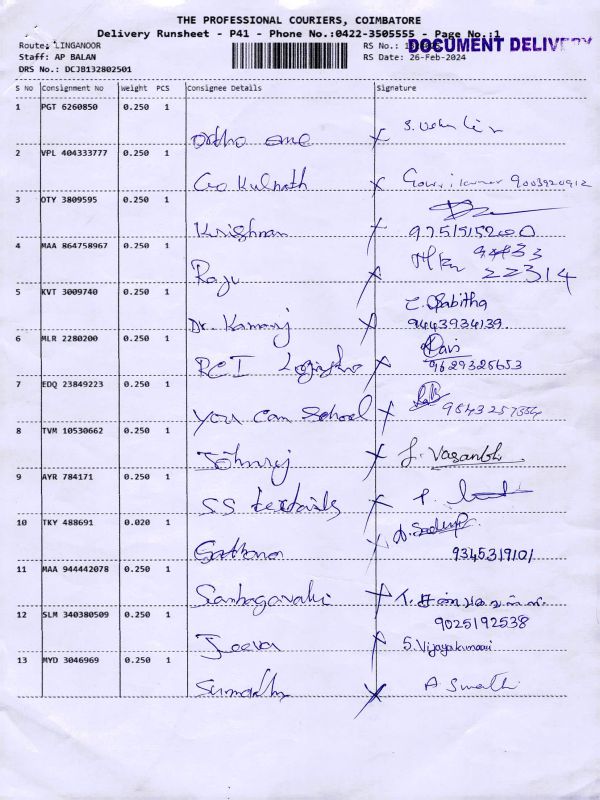 THE PROFESSIONAL COURIERS, COIMBATORE
Delivery Runsheet - P41 - Phone No.:0422-3505555 - Page No.:1
DOCUMENT DELIVERY
Route: LINGANOOR
RS No.:
Staff: AP BALAN
RS Date: 26-Feb-2024
DRS No.: DCJB132802501
S No Consignment No Weight PCS Consignee Details Signature
1 PGT 6260850 0.250 1
Ortho one
2 VPL 404333777 0.250 1
Go Kulnath Gowri kumar 9003920912
3 OTY 3809595 0.250 1
Krishnan 9751515200
4 MAA 864758967 0.250 1
Raju 94433 22314
5 KVT 3009740 0.250 1
Dr. Kamaraj
9443934139
6 MLR 2280200 0.250 1
RCI Logistics Ravi
9629325653
7 EDQ 23849223 0.250 1
You Can School
8 TVM 10530662 0.250 1
J. Vasanthi
9 AYR 784171 0.250 1
SS textails
10 TKY 488691 0.020 1
9345319101
11 MAA 944442078 0.250 1
9025192538
12 SLM 340380509 0.250 1
Jeeva S. Vijayakumari
13 MYD 3046969 0.250 1
A Swathi